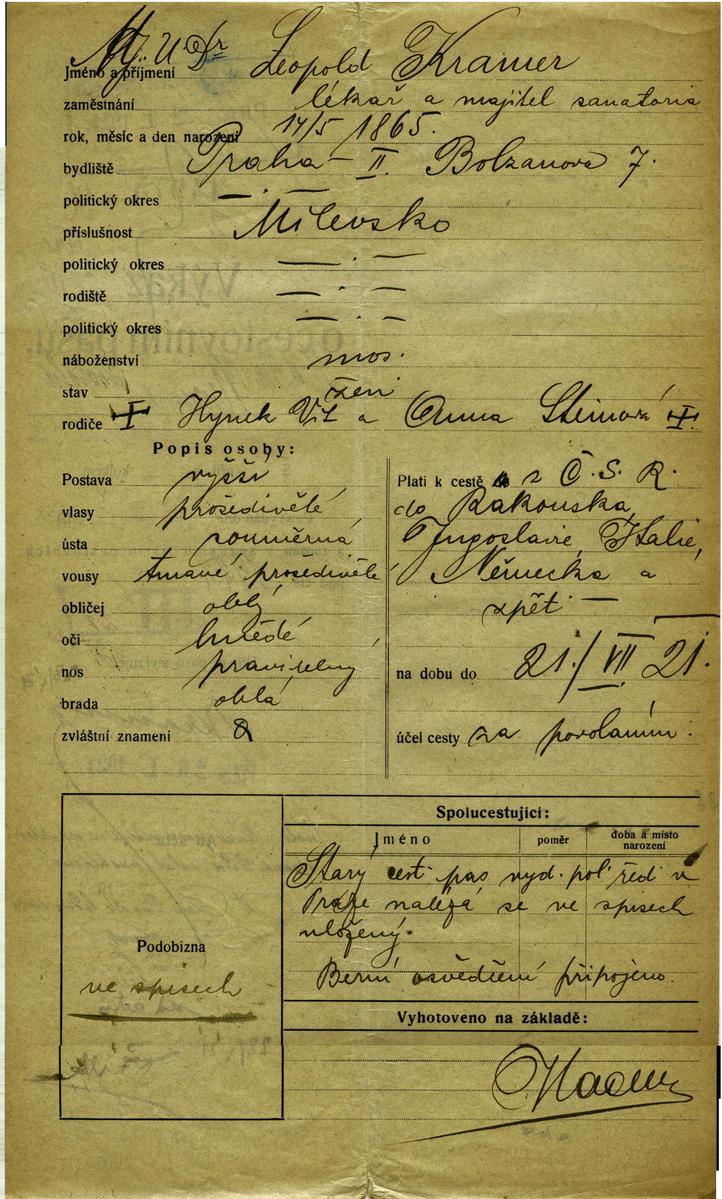 M.U.Dr Leopold Kramer
Jméno a příjmení
zaměstnání lékař a majitel sanatoria
rok, měsíc a den narození 14/5 1865.
bydliště Praha – II. Bolzanova 7.
politický okres — . —
příslušnost Milevsko
politický okres — . —
rodiště — . —
politický okres — . —
náboženství mos.
stav žen.
rodiče † Hynek Vít a Anna Steinová †
Popis osoby:
Postava vyšší
vlasy prošedivělé
ústa souměrná
vousy tmavé prošedivělé
obličej oblý
oči hnědé
nos pravidelný
brada oblá
zvláštní znamení
Platí k cestě z Č.S.R.
do Rakouska,
Jugoslavie, Italie,
Německa a
zpět —
na dobu do 21./VII 21.
účel cesty za povoláním.
Podobizna
ve spisech
Spolucestující:
Jméno poměr doba a místo narození
Starý cest. pas vyd. pol. řed. v
Praze nalézá se ve spisech
uložený.
Berní osvědčení připojeno.
Vyhotoveno na základě: